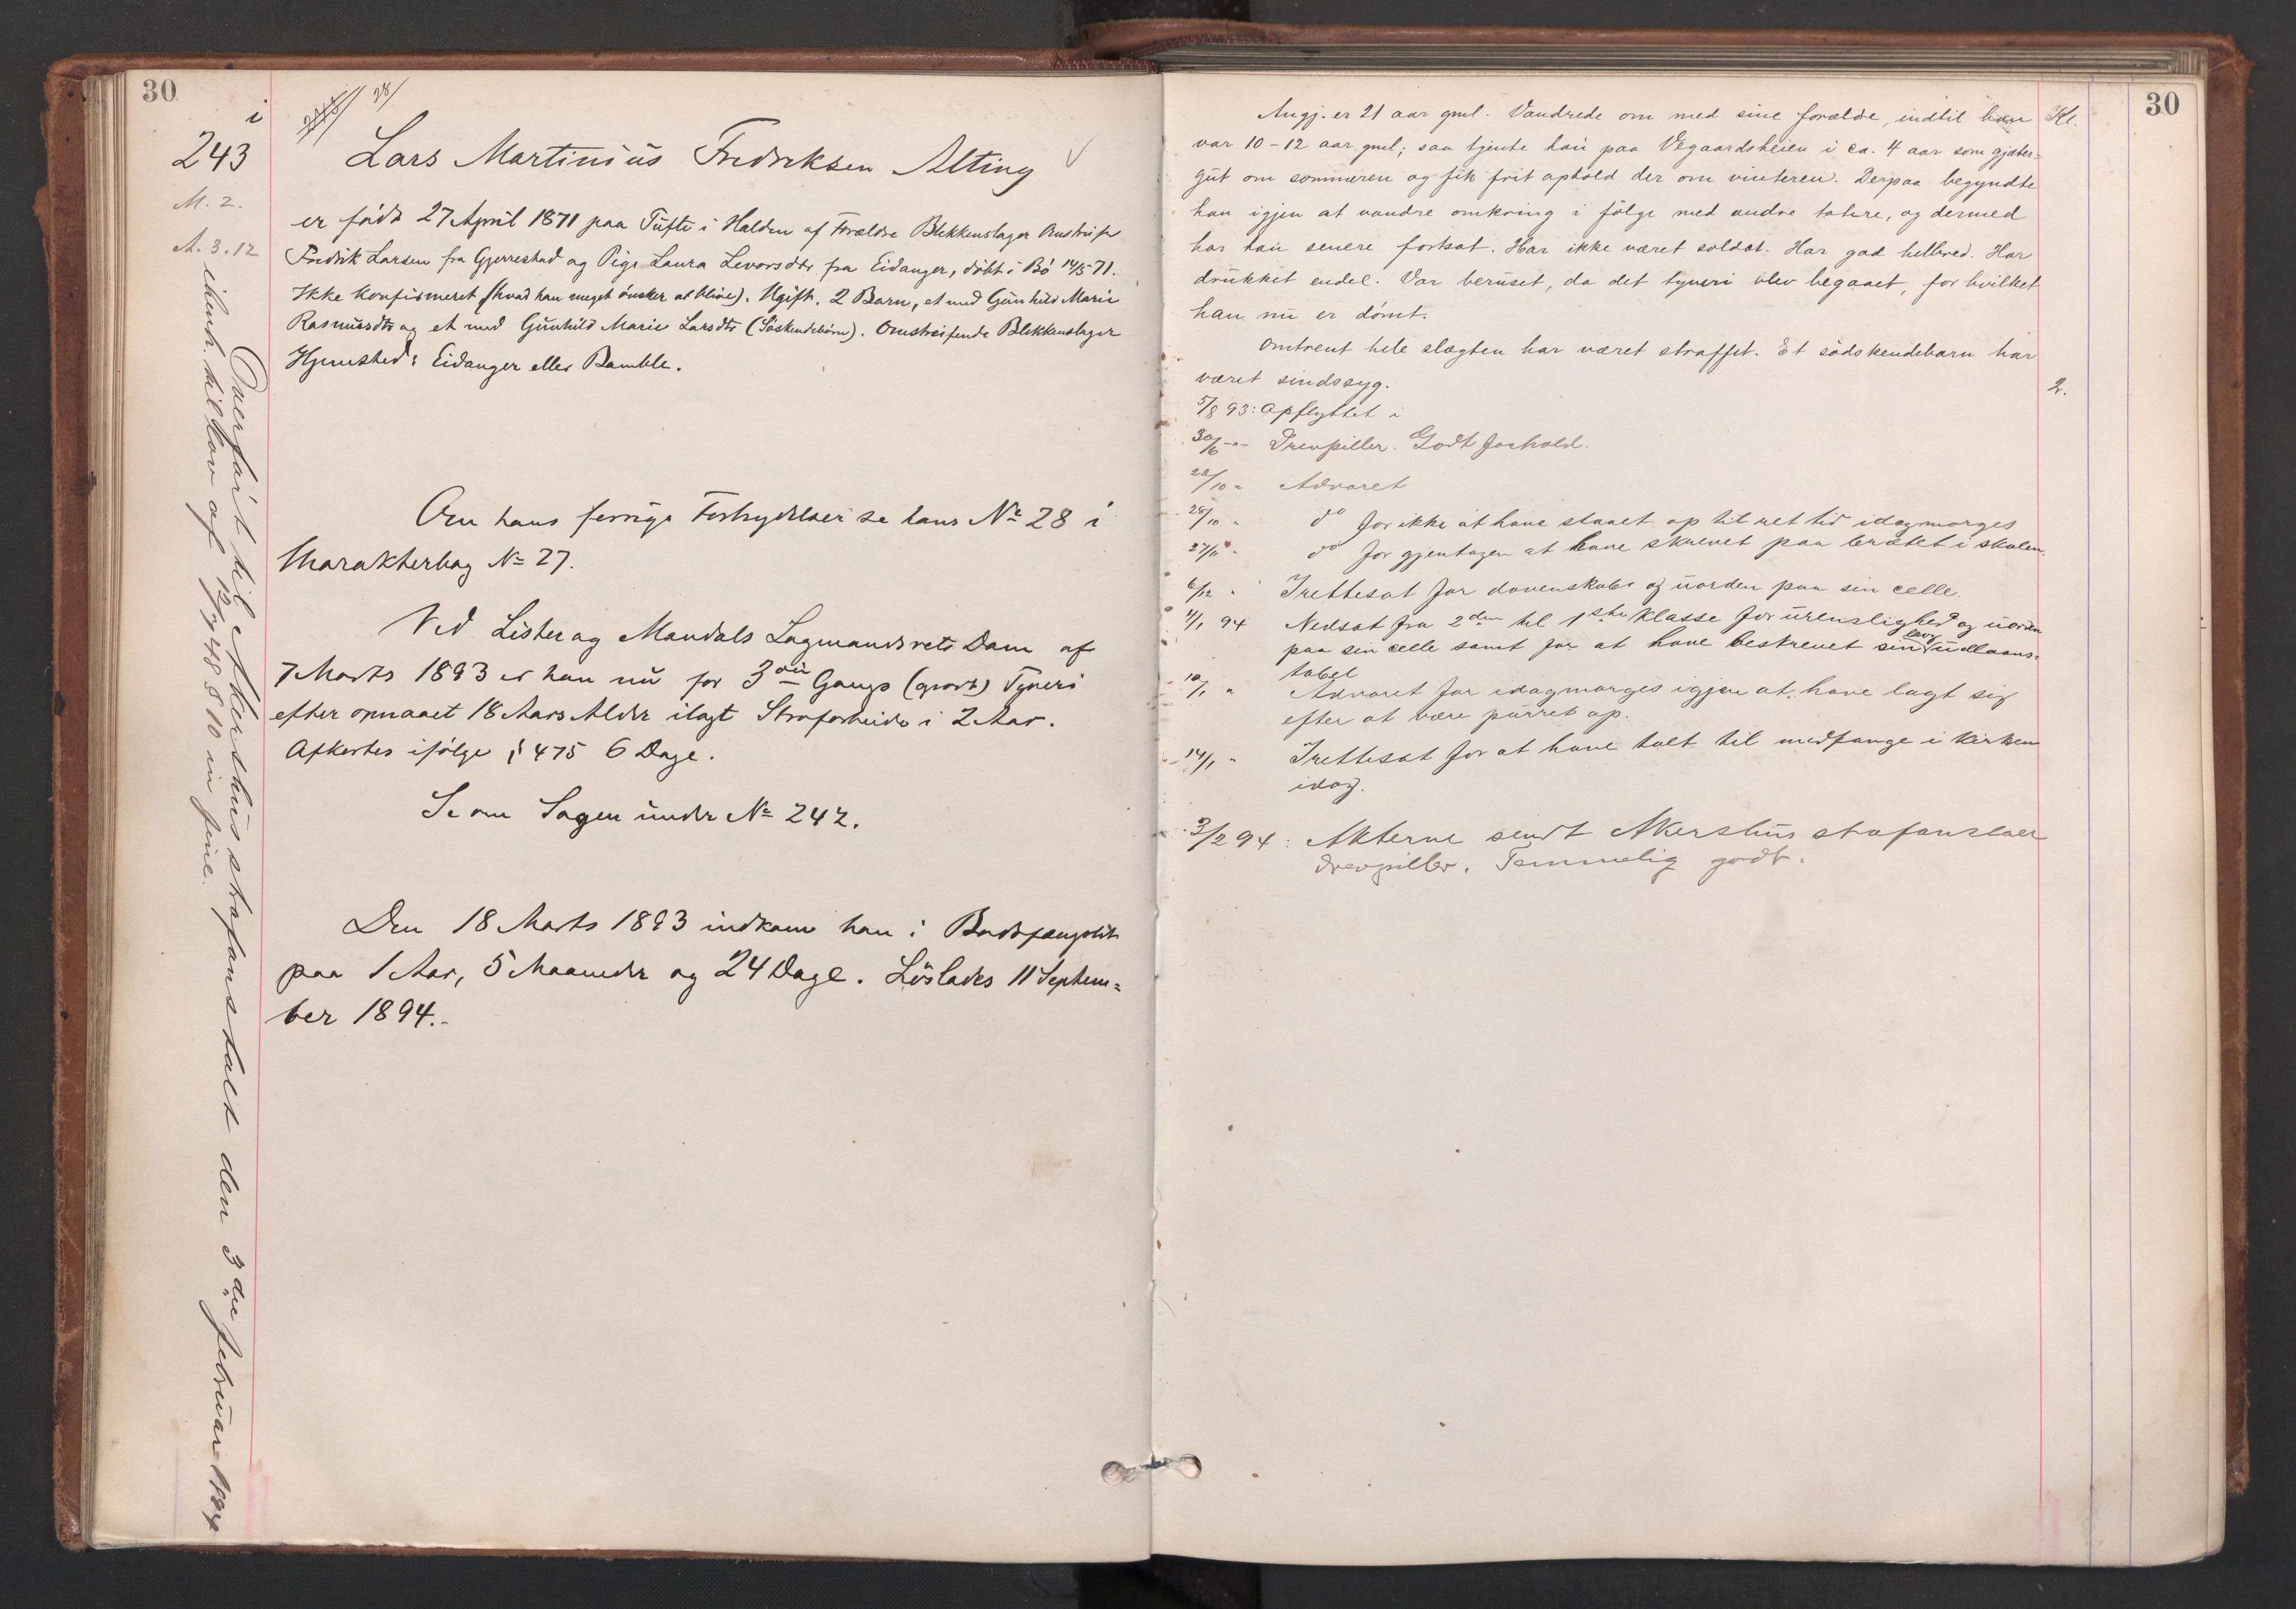 30
i
243
28/
Lars Martinius Fredriksen Alting
M. 2.
A. 3. 12
er född 27 April 1871 paa Tufte i Halden af Forældre Blikkenslager Omstreifer
Fredrik Larsen fra Gjerrestad og Pige Laura Levorsdtr fra Eidanger, döbt i Bö 14/5 71.
Ikke konfirmeret (hvad han meget önsker at blive). Ugift. 2 Barn, et med Gunhild Marie
Rasmusdtr og et med Gunhild Marie Larsdtr (Söskendebörn). Omstreifende Blikkenslager
Hjemsted: Eidanger eller Bamble.
Om hans forrige Forbrydelser se hans No 28 i
Charakterbog No 27.
Ved Lister og Mandals Lagmandsrets Dom af
7 Marts 1893 er han nu for 3die Gangs (grovt) Tyveri
efter opnaaet 18 Aars Alder ilagt Strafarbeide i 2 Aar.
Afkortes ifölge § 475 6 Dage.
Se om Sagen under No 242.
Den 18 Marts 1893 indkom han i Bodsfængslet
paa 1 Aar, 5 Maaneder og 24 Dage. Löslades 11 Septem=
ber 1894.
Overfört til Akershus strafanstalt den 3die februar 1894
ihenh. til lov af 12/7 48 § 10 in fine.
30
Kl.
Angj. er 21 aar gml. Vandrede om med sine forældre, indtil han
var 10-12 aar gml; saa tjente han paa Vegaardsheien i ca. 4 aar som gjæter=
gut om sommeren og fik frit ophold der om vinteren. Derpaa begyndte
han igjen at vandre omkring i fölge med andre tatere, og dermed
har han senere fortsat. Har ikke været soldat. Har god helbred. Har
drukket endel. Var beruset, da det tyveri blev begaaet, for hvilket
han nu er dömt.
Omtrent hele slægten har været straffet. Et södskendebarn har
været sindssyg.
2.
5/8 93: Opflyttet i
30/6 -"- Drevpiller. Godt forhold.
22/10 " Advaret
25/10 " do for ikke at have staaet op til ret tid idagmorges
27/11 " do for gjentagen at have skrevet paa brættet i skolen.
6/12 " Irettesat for dovenskab og uorden paa sin celle.
4/1 94 Nedsat fra 2den til 1ste klasse for urenslighed og uorden
paa sin celle samt for at have beskrevet sin udlaans=
tabel
10/1 " Advaret for idagmorges igjen at have lagt sig
efter at være purret op.
14/1 " Irettesat for at have talt til medfange i kirken
idag.
3/2 94: Akterne sendt Akershus strafanstalt
drevpiller. Temmelig godt.